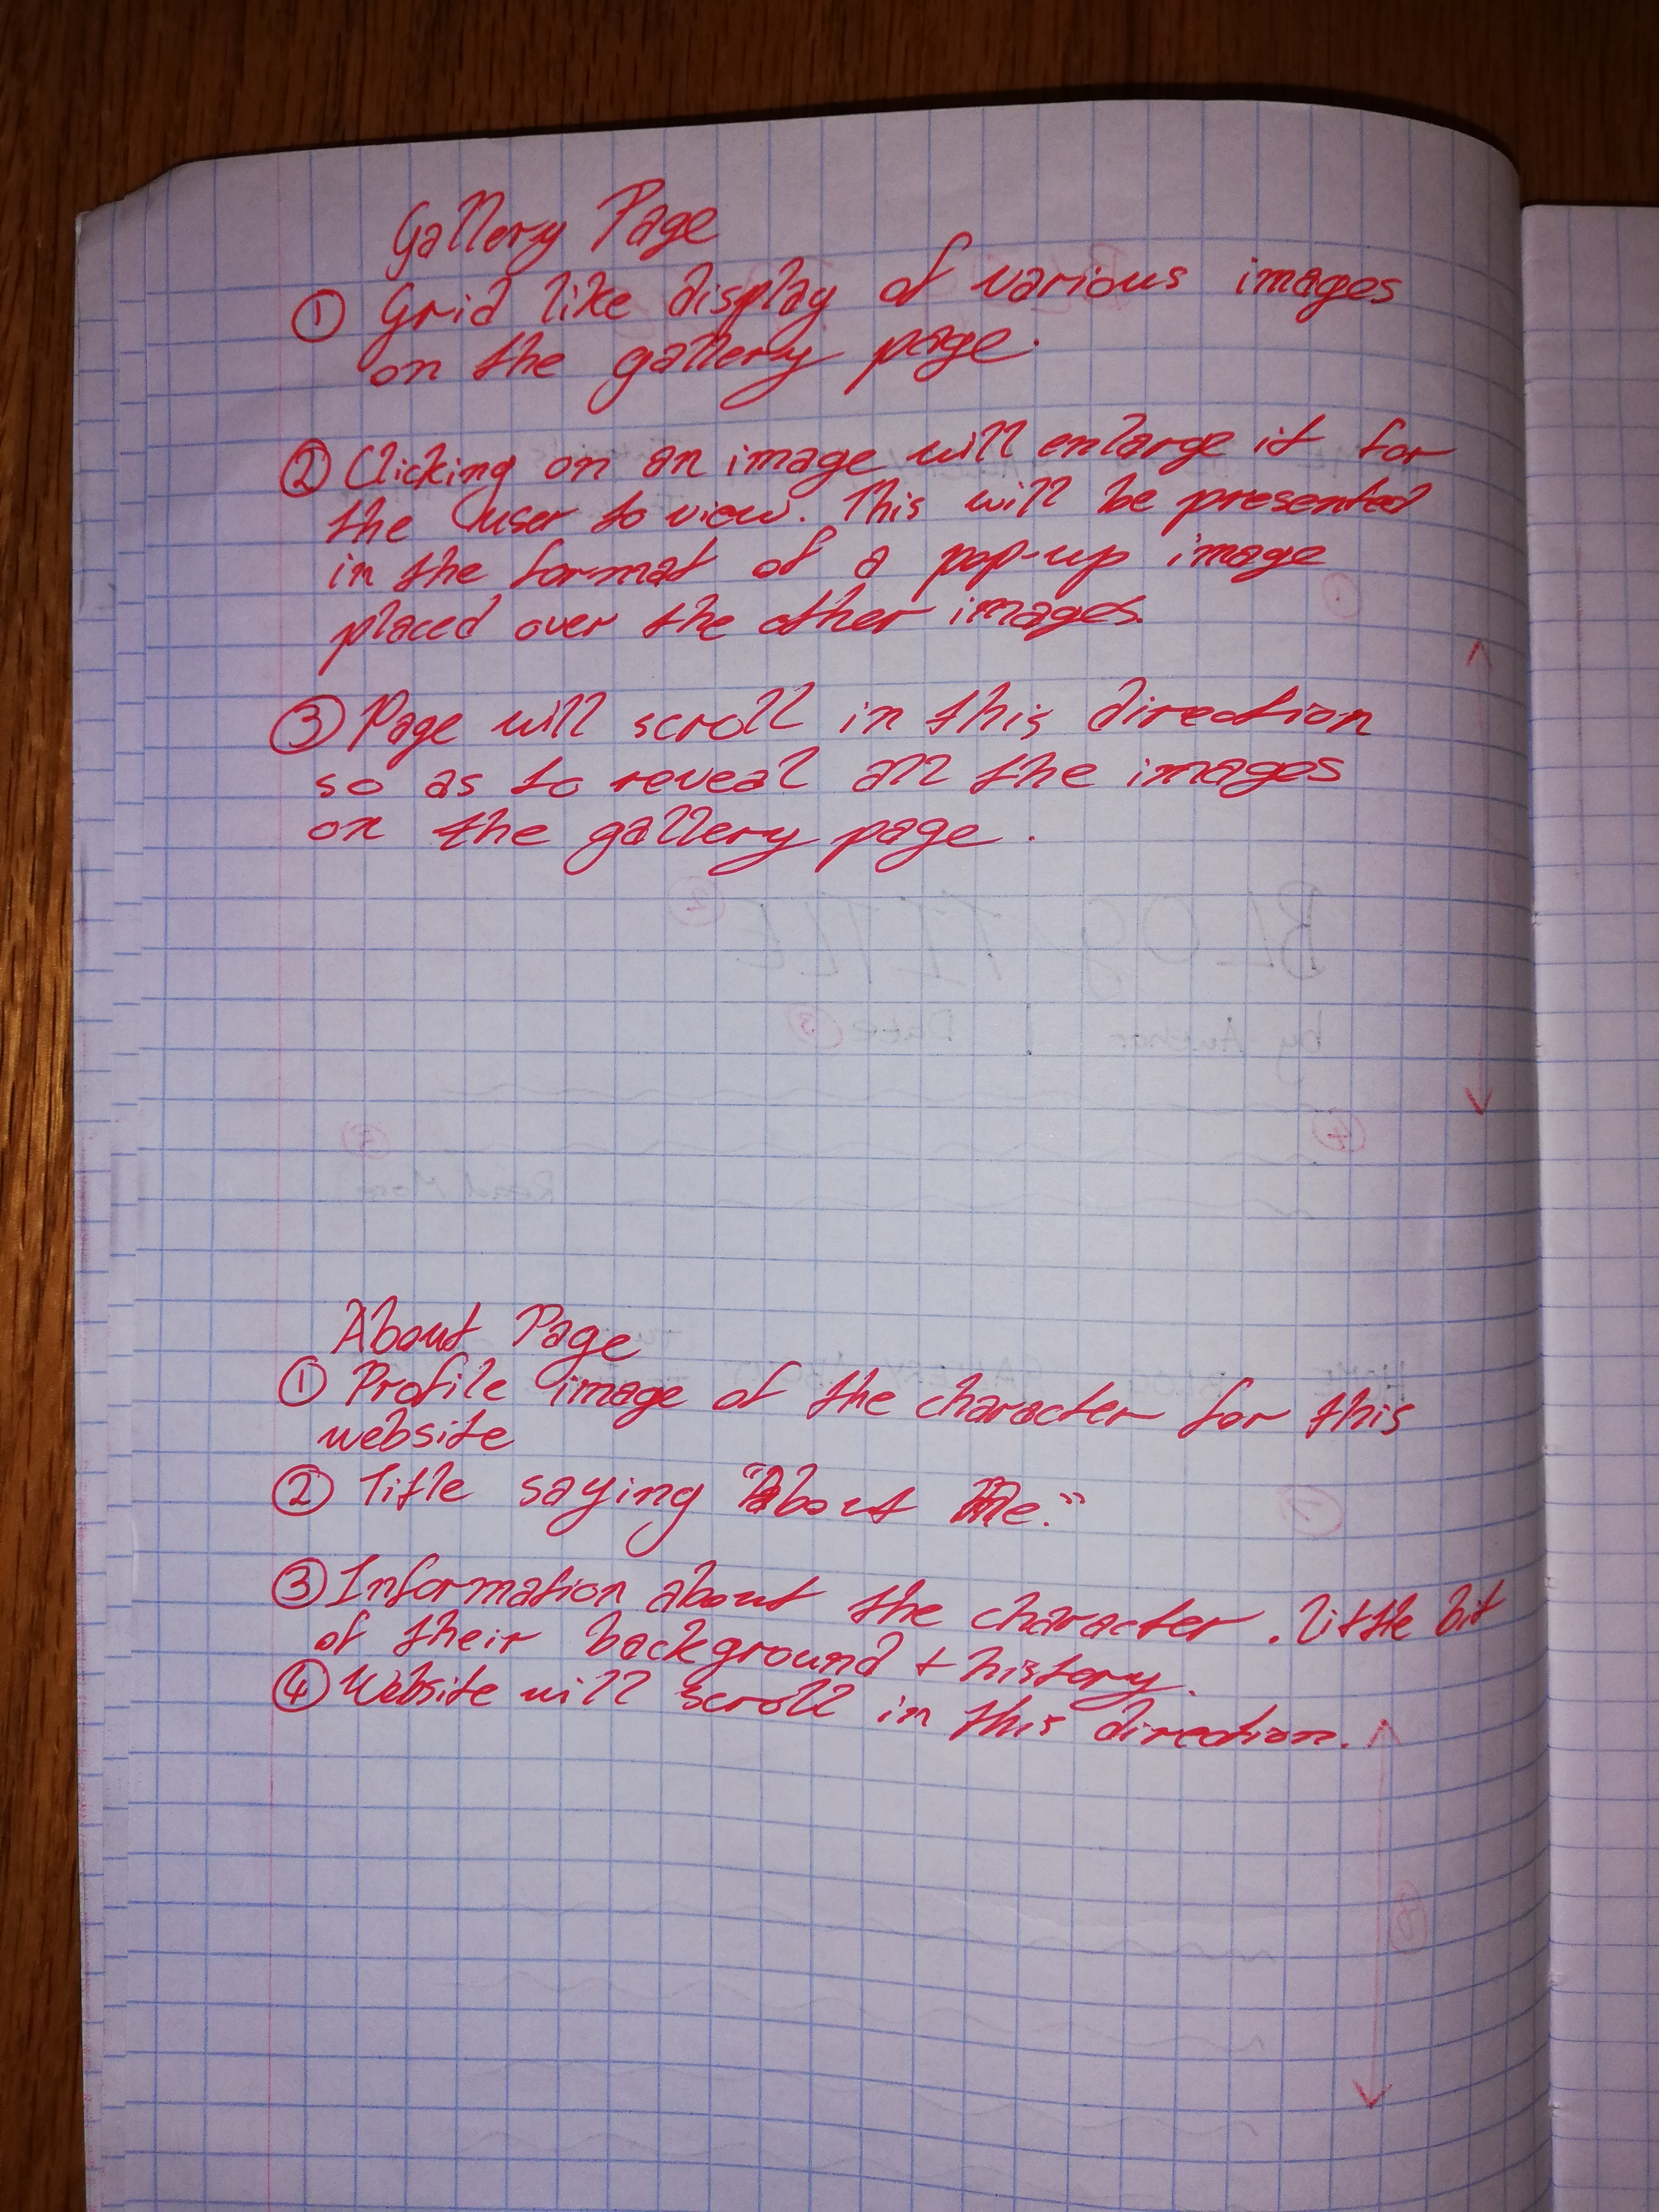 Gallery Page
① Grid like display of various images
on the gallery page.
② Clicking on an image will enlarge it for
the user to view. This will be presented
in the format of a pop-up image
placed over the other images.
③ Page will scroll in this direction
so as to reveal all the images
on the gallery page.
BLOG TITLE ②
by Author Date ③
④ ⑤
Read More
About Page
① Profile image of the character for this
website
② Title saying "About Me."
③ Information about the character. Little bit
of their background + history.
④ Website will scroll in this direction.